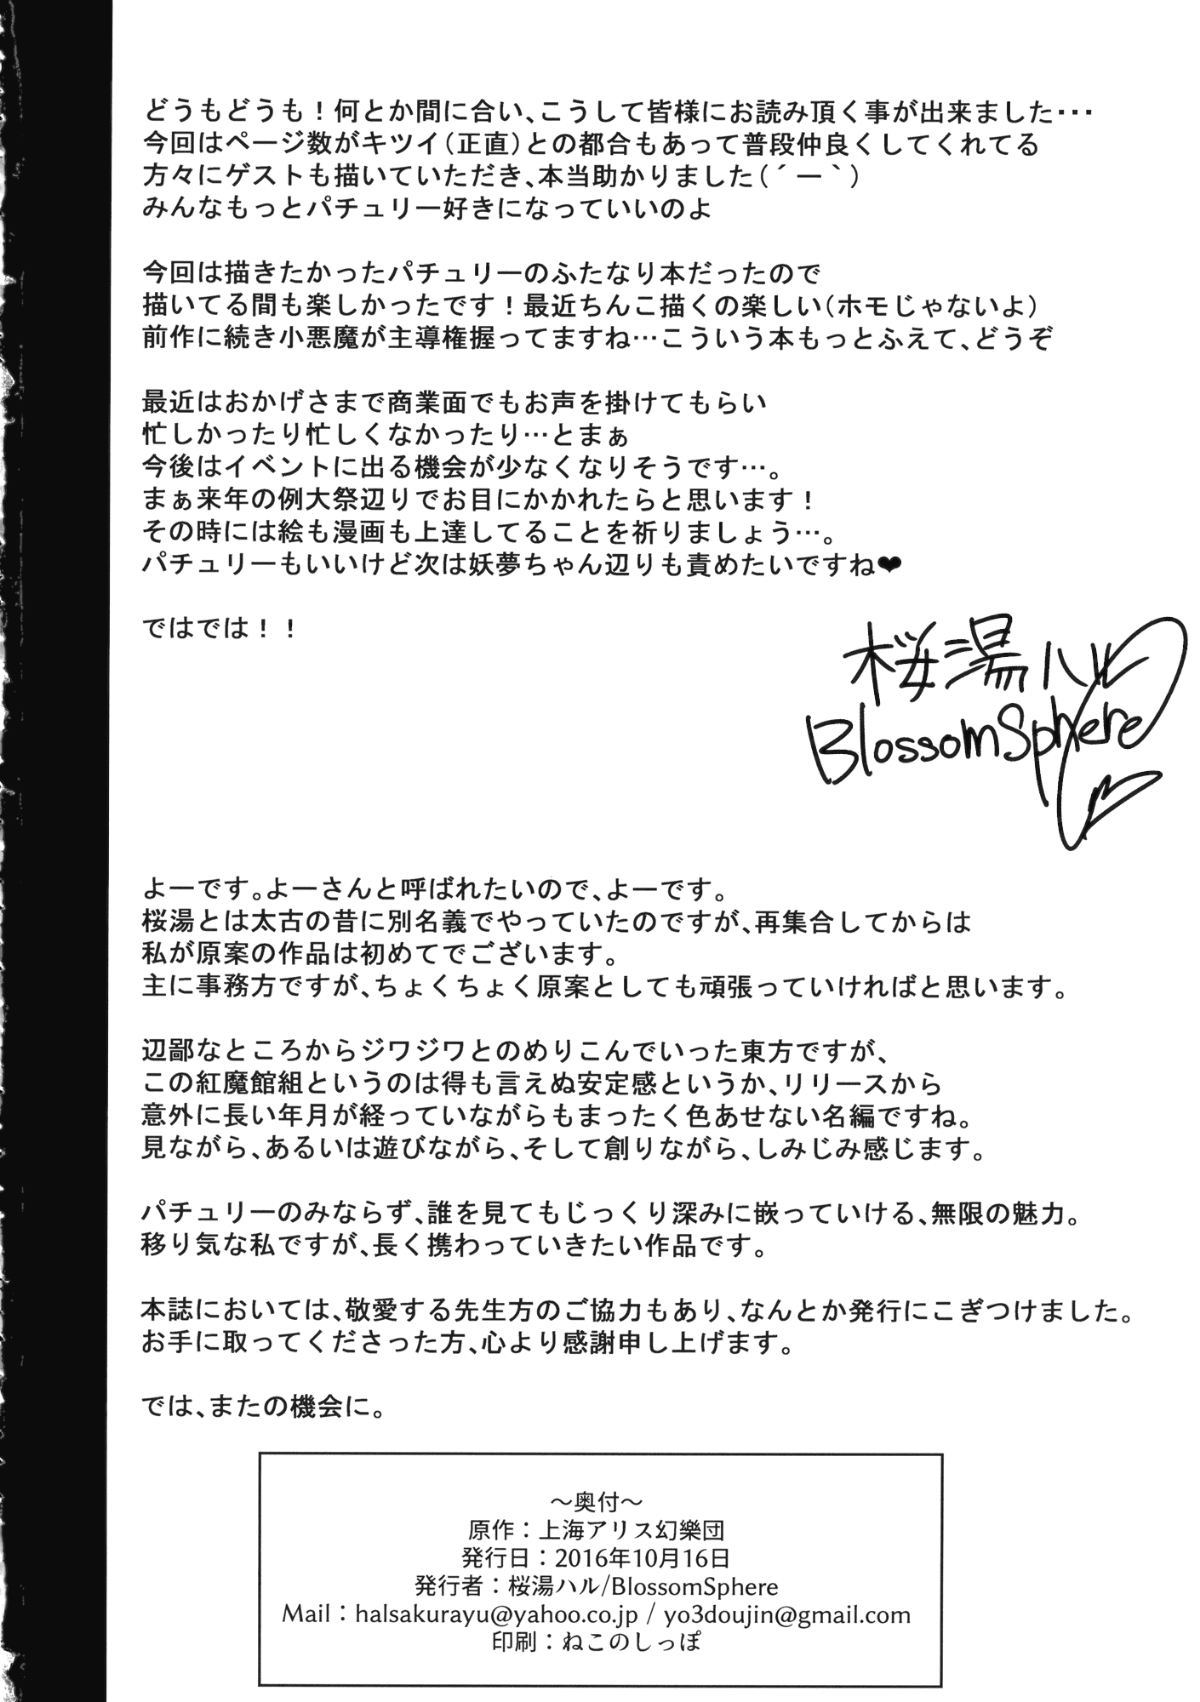 どうもどうも！何とか間に合い、こうして皆様にお読み頂く事が出来ました・・・
今回はページ数がキツイ（正直）との都合もあって普段仲良くしてくれてる
方々にゲストも描いていただき、本当助かりました（´ー｀）
みんなもっとパチュリー好きになっていいのよ
今回は描きたかったパチュリーのふたなり本だったので
描いてる間も楽しかったです！最近ちんこ描くの楽しい（ホモじゃないよ）
前作に続き小悪魔が主導権握ってますね…こういう本もっとふえて、どうぞ
最近はおかげさまで商業面でもお声を掛けてもらい
忙しかったり忙しくなかったり…とまぁ
今後はイベントに出る機会が少なくなりそうです…。
まぁ来年の例大祭辺りでお目にかかれたらと思います！
その時には絵も漫画も上達してることを祈りましょう…。
パチュリーもいいけど次は妖夢ちゃん辺りも責めたいですね❤
ではでは！！
桜湯ハル
BlossomSphere
よーです。よーさんと呼ばれたいので、よーです。
桜湯とは太古の昔に別名義でやっていたのですが、再集合してからは
私が原案の作品は初めてでございます。
主に事務方ですが、ちょくちょく原案としても頑張っていければと思います。
辺鄙なところからジワジワとのめりこんでいった東方ですが、
この紅魔館組というのは得も言えぬ安定感というか、リリースから
意外に長い年月が経っていながらもまったく色あせない名編ですね。
見ながら、あるいは遊びながら、そして創りながら、しみじみ感じます。
パチュリーのみならず、誰を見てもじっくり深みに嵌っていける、無限の魅力。
移り気な私ですが、長く携わっていきたい作品です。
本誌においては、敬愛する先生方のご協力もあり、なんとか発行にこぎつけました。
お手に取ってくださった方、心より感謝申し上げます。
では、またの機会に。
～奥付～
原作：上海アリス幻樂団
発行日：2016年10月16日
発行者：桜湯ハル/BlossomSphere
Mail：halsakurayu@yahoo.co.jp / yo3doujin@gmail.com
印刷：ねこのしっぽ